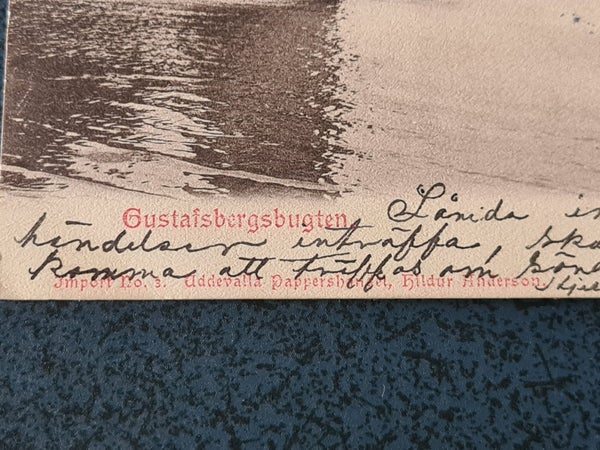 Gustafsbergsbugten.
Såvida in
händelser inträffa, ska
komma att träffas om Sönd
Import No. 3. Uddevalla Pappershandel, Hildur Anderson.